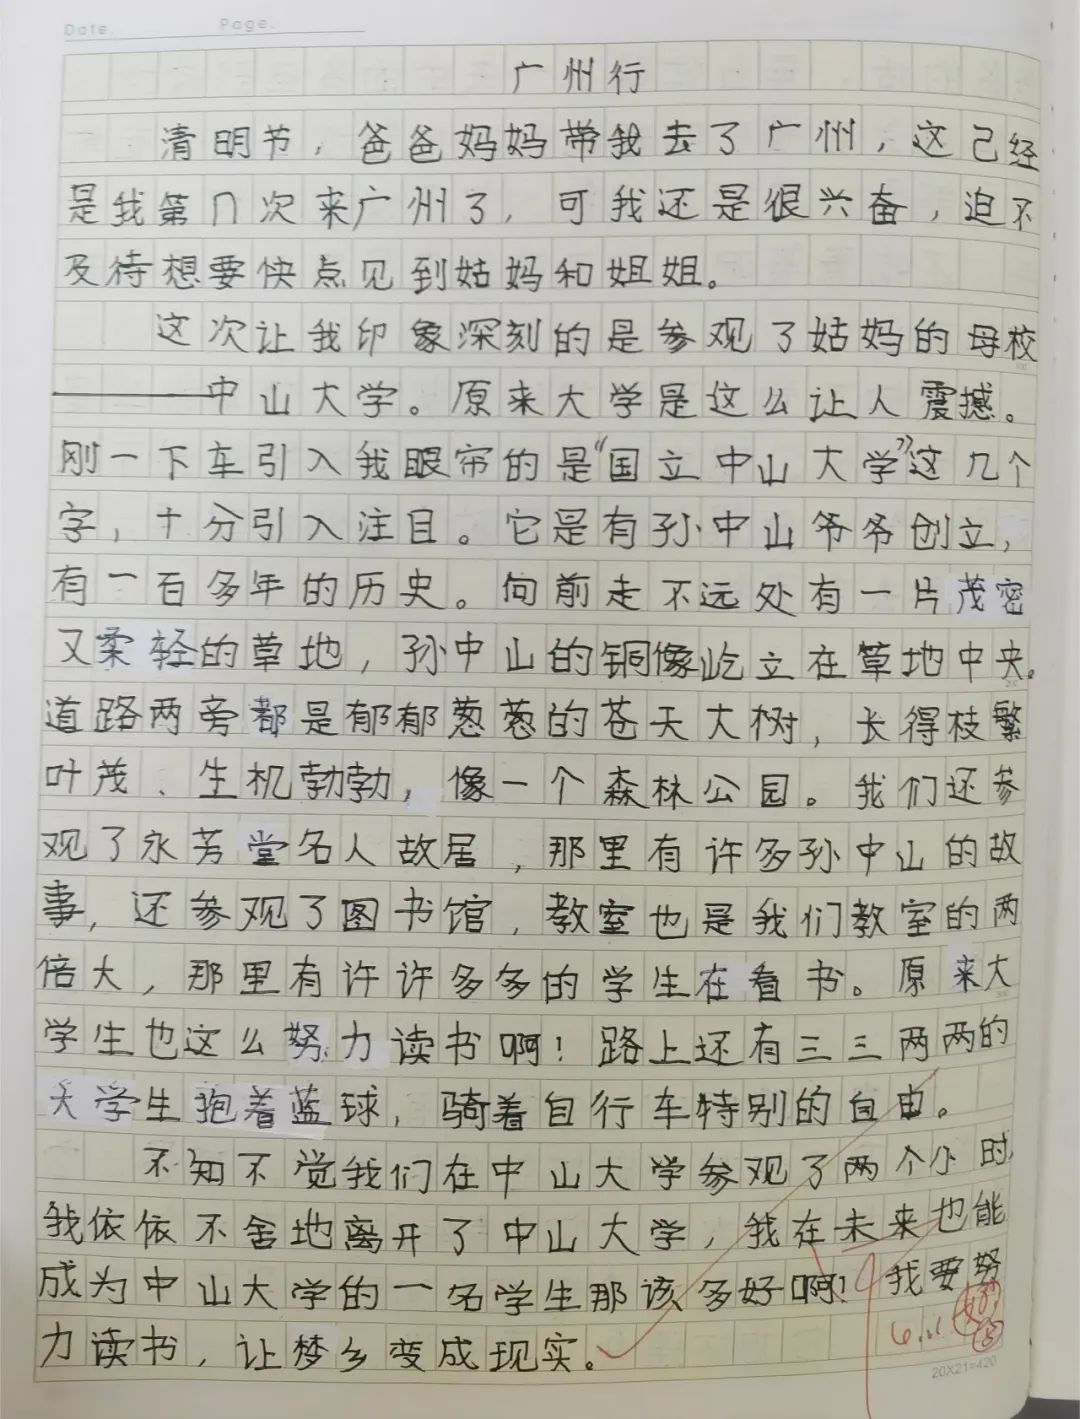 Date.
Page.
广州行
清明节，爸爸妈妈带我去了广州，这己经
是我第几次来广州了，可我还是很兴奋，迫不
及待想要快点见到姑妈和姐姐。
这次让我印象深刻的是参观了姑妈的母校
——中山大学。原来大学是这么让人震撼。
刚一下车引入我眼帘的是“国立中山大学”这几个
字，十分引入注目。它是有孙中山爷爷创立，
有一百多年的历史。向前走不远处有一片茂密
又柔轻的草地，孙中山的铜像屹立在草地中央。
道路两旁都是郁郁葱葱的苍天大树，长得枝繁
叶茂、生机勃勃，像一个森林公园。我们还参
观了永芳堂名人故居，那里有许多孙中山的故
事，还参观了图书馆，教室也是我们教室的两
倍大，那里有许许多多的学生在看书。原来大
学生也这么努力读书啊！路上还有三三两两的
大学生抱着蓝球，骑着自行车特别的自由。
不知不觉我们在中山大学参观了两个小时，
我依依不舍地离开了中山大学，我在未来也能
成为中山大学的一名学生那该多好啊！我要努
力读书，让梦乡变成现实。
20X21=420